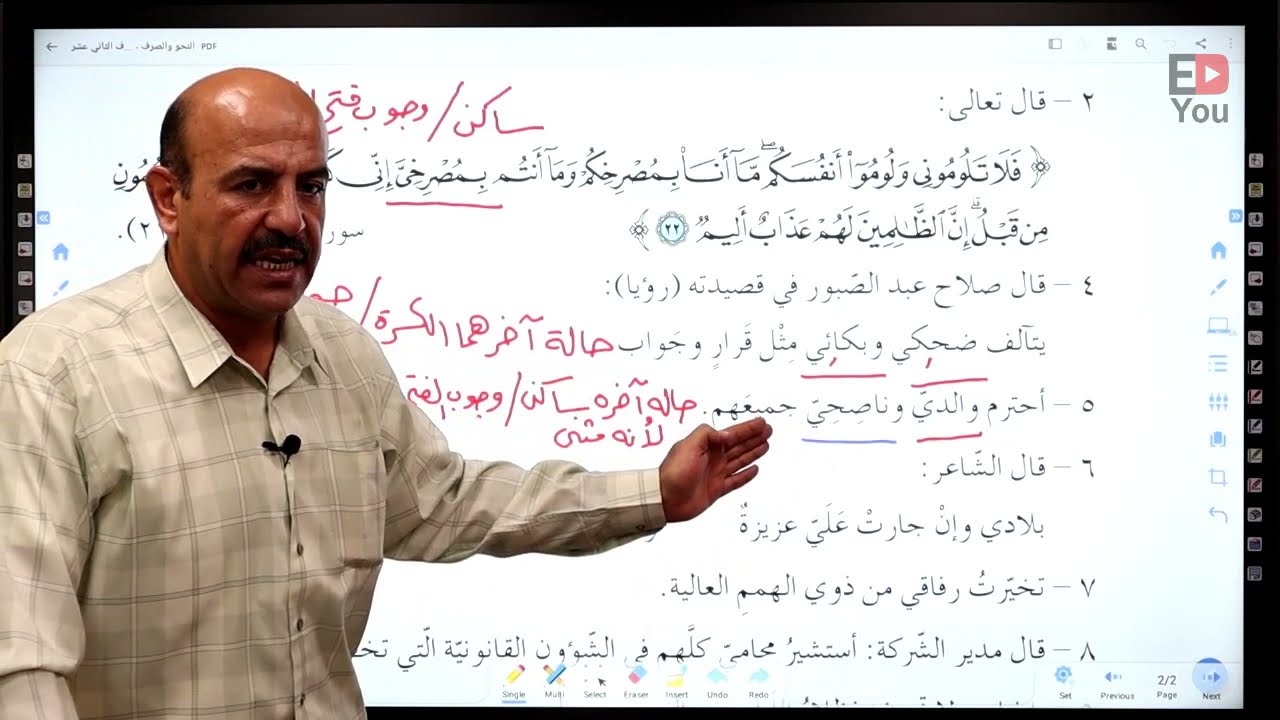 النحو والصرف - ـف الثاني عشر PDF
ED
You
٢ – قال تعالى:
ساكن / وجوب فتح
﴿ فَلَا تَلُومُونِي وَلُومُوٓا۟ أَنفُسَكُم ۖ مَّآ أَنَا۠ بِمُصْرِخِكُمْ وَمَآ أَنتُم بِمُصْرِخِىَّ إِنِّى
مِن قَبْلُ ۗ إِنَّ ٱلظَّٰلِمِينَ لَهُمْ عَذَابٌ أَلِيمٌ ٢٢ ﴾
٤ – قال صلاح عبد الصّبور في قصيدته (رؤيا):
يتآلف ضحِكي وبكائِي مِثْل قَرارٍ وجَواب
حالة آخرهما الكسرة /
٥ – أحترم والديَّ وناصِحِيّ جميعَهم.
حاله آخره ساكن / وجوب الفتح
لأنه مثنى
٦ – قال الشّاعر:
بلادي وإنْ جارتْ عَلَيّ عزيزةٌ
٧ – تخيّرتُ رفاقي من ذوي الهممِ العالية.
٨ – قال مدير الشّركة: أستشيرُ محاميّ كلَّهم في الشّؤون القانونيّة الّتي
Single Multi Select Eraser Insert Undo Redo
Set Previous 2/2 Page Next